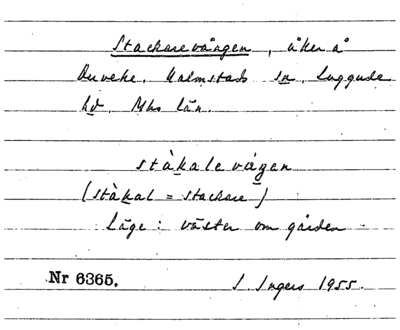 Stackarevången, åker å
Duveke, Kalmstads sn, Luggude
hd, Mhs län.
stàkalevågen
(stàkal = stackare)
Läge: väster om gården
Nr 6365. I. Ingers 1955.